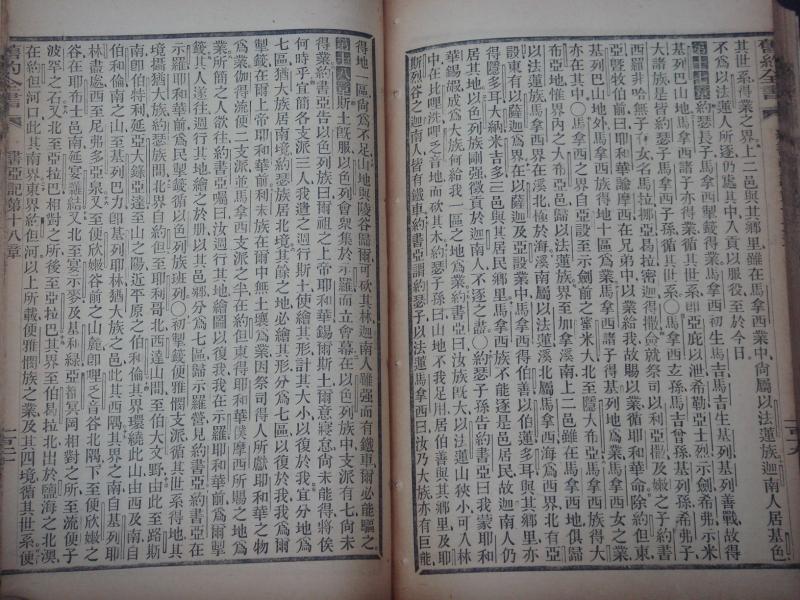 舊約全書
其世系得業之界上二邑與其鄉里雖在馬拿西業中向屬以法蓮族迦南人居基色
不爲以法蓮人所逐仍處其中入貢以服役至於今日
第十七章約瑟長子馬拿西掣籤得業循其世系馬拿西初生馬吉馬吉生基列基列善戰故得
基列巴山地馬拿西諸子亦得業循其世系卽亞庇以泄希勒亞士烈示劍希弗示米
大諸族是皆約瑟子馬拿西子孫循其世系○馬拿西玄孫馬吉曾孫基列孫希弗子
西羅非哈無子有女名馬拉挪亞曷拉密迦得撒僉就祭司以利亞撒及嫩之子約書
亞曁牧伯前曰耶和華諭摩西在兄弟中以業給我故賜以業循耶和華命除約但東
基列巴山地外馬拿西族得地十區爲馬拿西諸子得基列地爲業馬拿西女之業
亦在其中○馬拿西之界自亞設至示劍前之密米大北至隱大布亞馬拿西族得大
布亞地惟界內之大布亞邑歸以法蓮族界至加拿溪南上二邑雖在馬拿西地俱歸
以法蓮族馬拿西界在溪北極於海溪南屬以法蓮溪北屬馬拿西海爲西界北有亞
設東有以薩迦爲界在以薩迦及亞設業中馬拿西得伯善以伯蓮多珥與其鄉里亦
得隱多珥大納米吉多三邑與其居民鄉里馬拿西族不能逐是邑居民故迦南人仍
居其地以色列族剛強徵貢於迦南人不逐之盡○約瑟子孫告約書亞曰我蒙耶和
華錫嘏成爲大族何給我一區之地爲業約書亞曰汝族旣大以法蓮山狹小可入林
中在比哩洗哩乏音地而砍其木約瑟子孫曰山地不我足用居伯善與其鄉里及耶
斯列谷之迦南人皆有鐵車約書亞謂約瑟子以法蓮馬拿西曰汝乃大族亦有巨能
得地一區尙爲不足山地與陵谷歸爾可砍其林迦南人雖強而有鐵車爾必能驅之
第十八章斯土旣服以色列會衆集於示羅而立會幕在以色列族中支派有七尙未
得業約書亞告以色列族曰爾祖之上帝耶和華錫爾斯土爾意寢怠尙未能得將俟
何時乎宜簡各支派三人我遣之遊行斯土使繪其形計其大小以復於我宜分地爲
七區猶大族居南境約瑟族居北境其餘之地必繪其形分爲七區以復於我我爲爾
掣籤在爾上帝耶和華前利未族在爾中無土壤爲業因祭司得人所獻耶和華之物
爲業伽得流便二支派並馬拿西支派之半在約但東得耶和華僕摩西所賜之地爲
業所簡之人欲往約書亞囑曰汝遊行其地繪圖以復我我在示羅耶和華前爲爾掣
籤其人遂往遊行其地繪之於册以其邑鄉分爲七區歸示羅營見約書亞約書亞在
示羅耶和華前爲民掣籤循以色列族班列○初掣籤便雅憫支派循其世系得地其
境攝猶大族約瑟族間北界自約但至耶利哥北西達山間至伯大文野由此至路斯
南卽伯特利延亞大錄亞至山之陽近平原之伯和倫其界環繞此山由西及南自
伯和倫南之山至基列巴力卽基列耶林猶大族之邑此其西隅其界之南自基列耶
林盡處西至尼弗多亞泉又至便欣嫩谷前之山麓卽哩乏音谷北隅下至便欣嫩之
谷在耶布士邑南延宴羅結又北至宴示麥及基利綠亞督冥岡相對之所至流便子
波罕之石又北至亞拉巴相對之所後至亞拉巴其界至伯曷拉北出於鹽海之北溴
在約但河口此其南界東界約但河以上所載便雅憫族之業及其四境循其世系便
舊約全書
書亞記第十八章